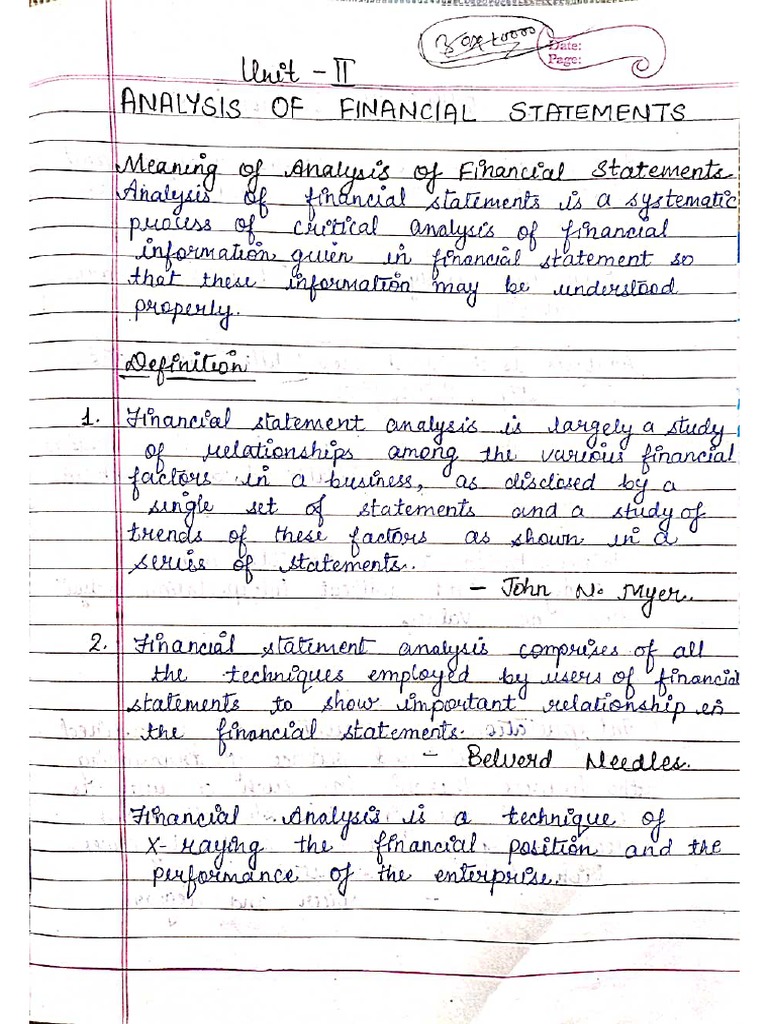 Date:
Page:
Unit - II
ANALYSIS OF FINANCIAL STATEMENTS
Meaning of Analysis of Financial Statements
Analysis of financial statements is a systematic
process of critical analysis of financial
information given in financial statement so
that these information may be understood
properly.
Definition
1. Financial statement analysis is largely a study
of relationships among the various financial
factors in a business, as disclosed by a
single set of statements and a study of
trends of these factors as shown in a
series of statements.
- John N. Myer.
2. Financial statement analysis comprises of all
the techniques employed by users of financial
statements to show important relationship in
the financial statements.
- Belverd Needles.
Financial Analysis is a technique of
X-raying the financial position and the
performance of the enterprise.